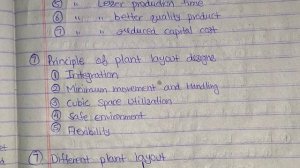 ⑤ " Lesser production time
⑥ " " better quality product
⑦ " " reduced capital cost
⑦ Principle of plant layout designs
① Integration
② Minimum movement and Handling
③ Cubic space utilization
④ Safe environment
⑤ Flexibility
⑦ Different plant layout